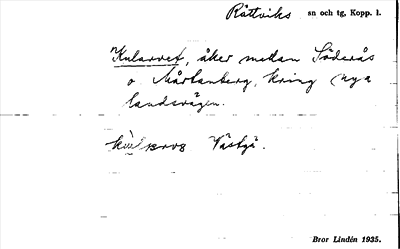 Rättviks sn och tg, Kopp. l.
Kularvet, åker mellan Söderås
o Mårtanberg, kring nya
landsvägen.
Västgä.
Bror Lindén 1935.